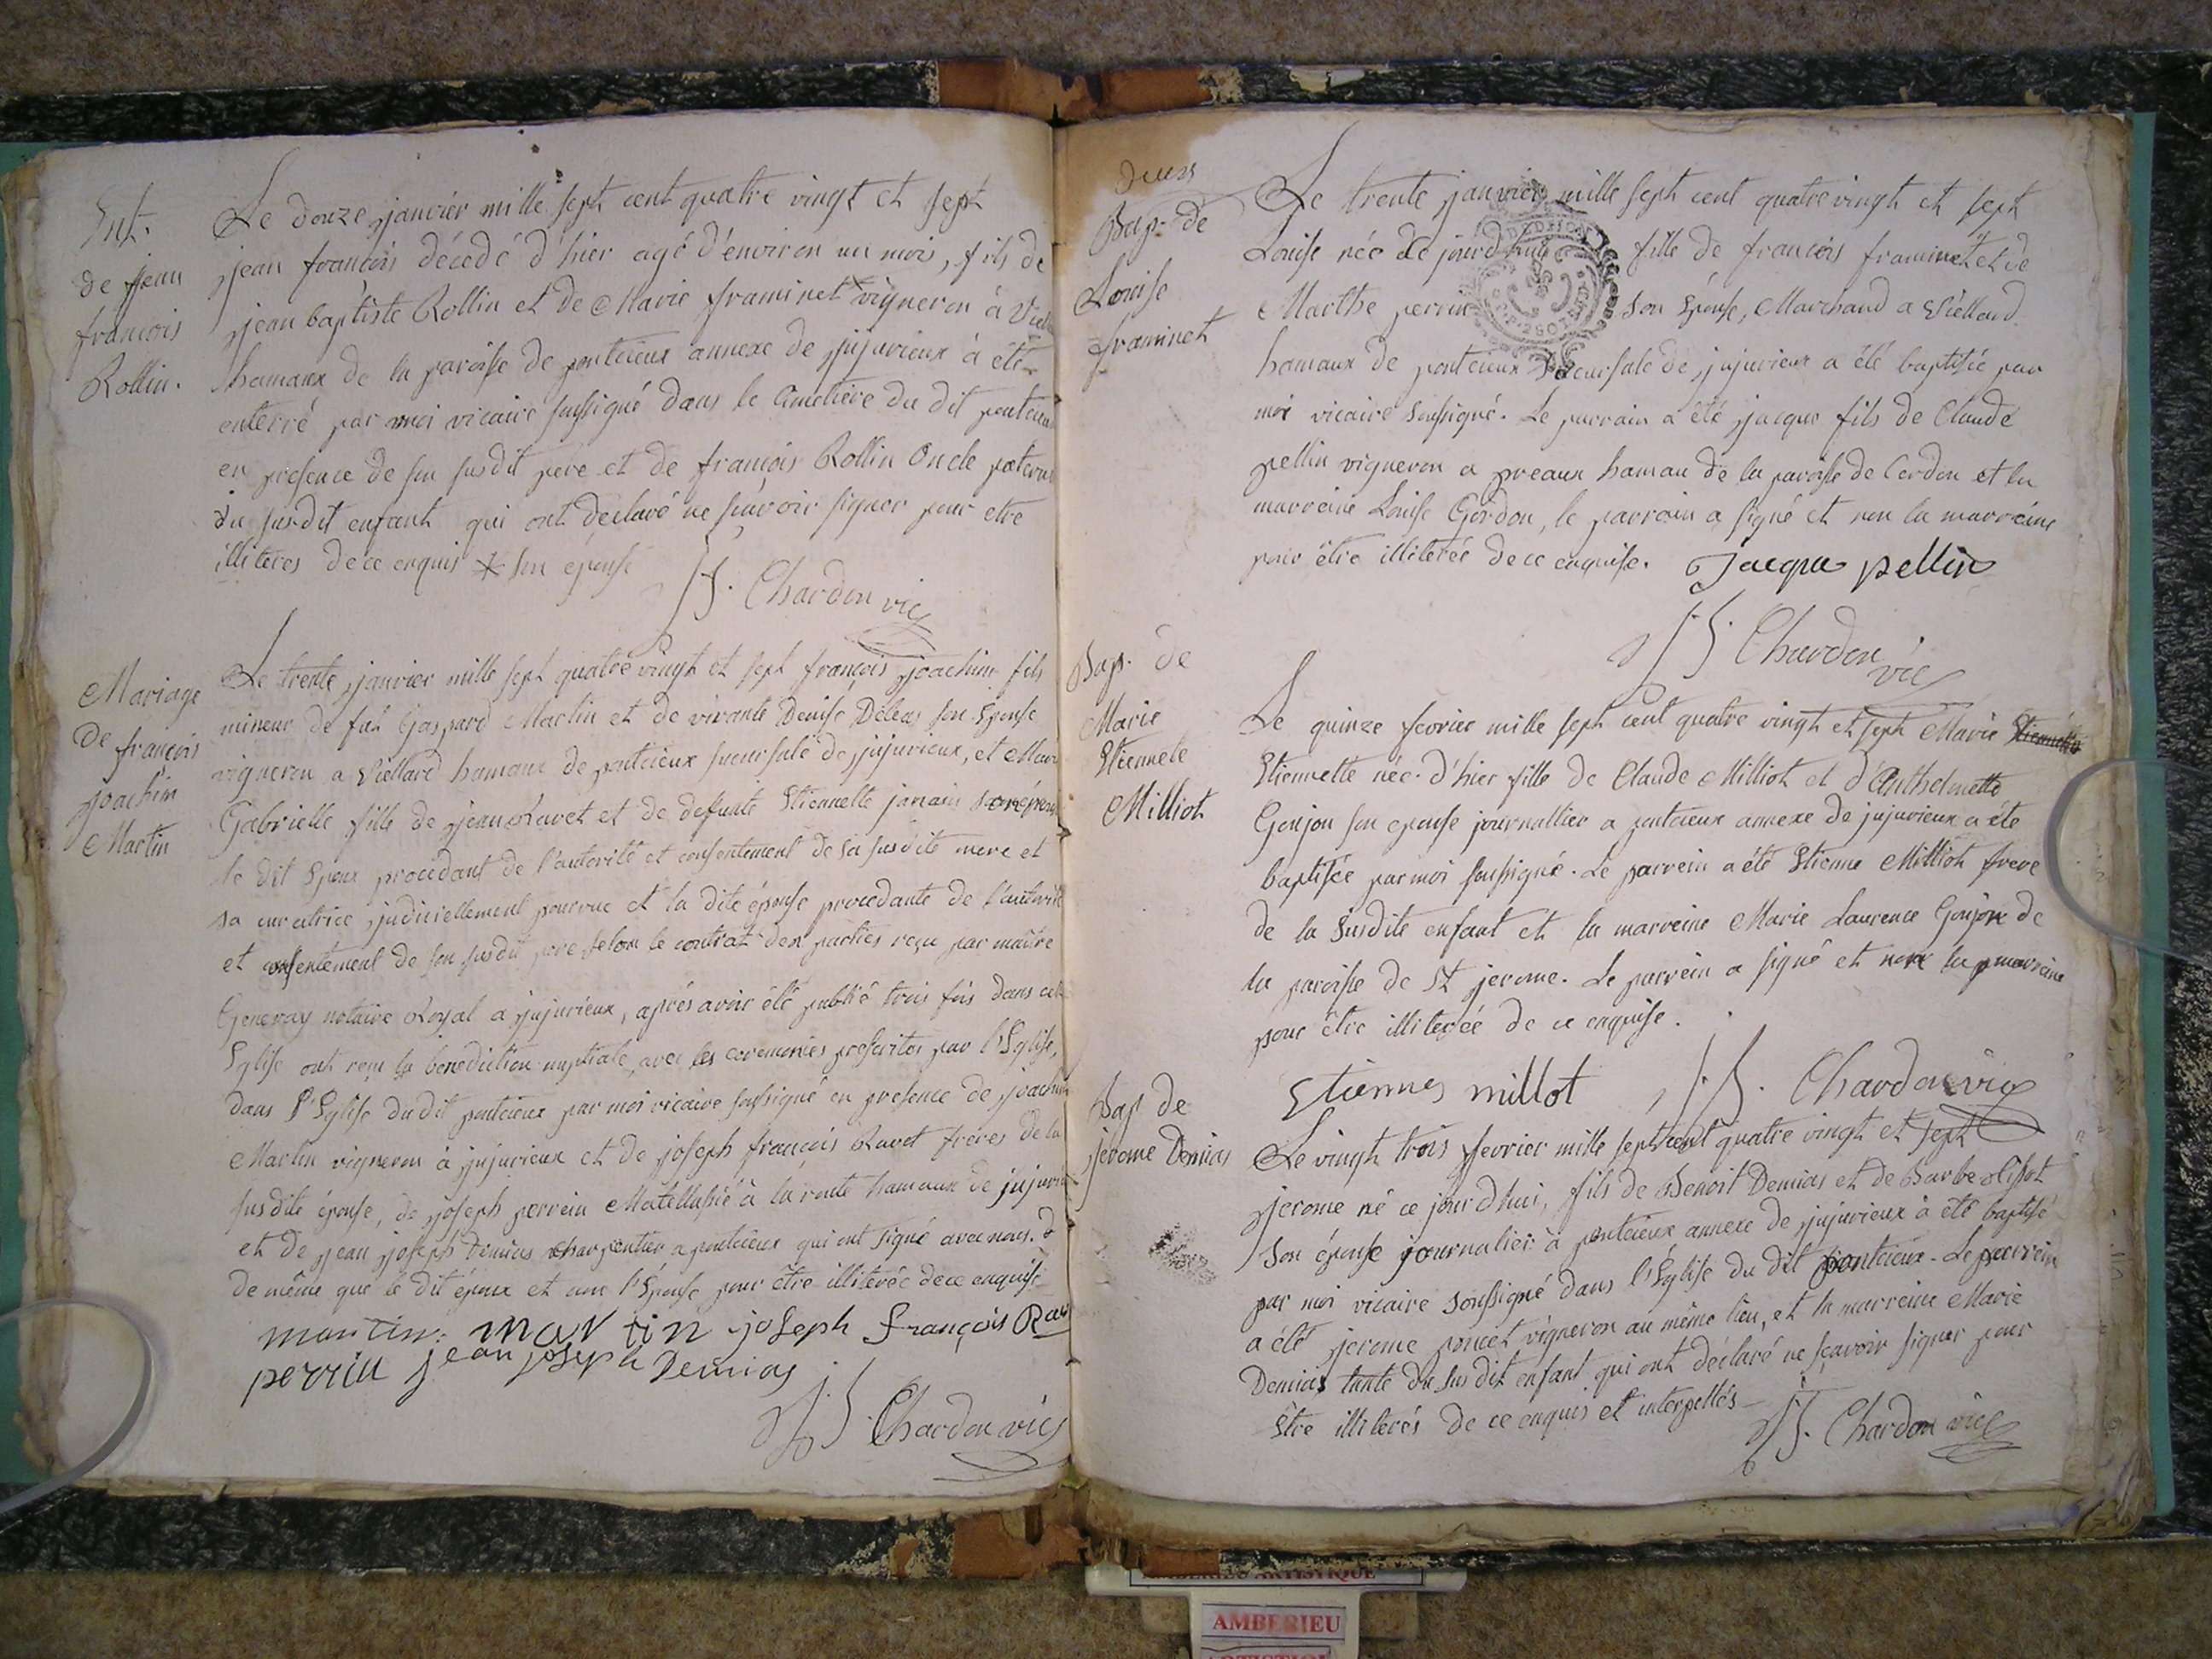 Ent.
de jean
francois
Rollin.
Le douze janvier mille sept cent quatre vingt et sept
jean francois décédé d'hier agé d'environ un mois, fils de
jean baptiste Rollin et de Marie framinet * vigneron à
hamaux de la paroisse de pontcieux annexe de jujurieux à été
enterré par moi vicaire soussigné dans le cimetière du dit pontcieux
en presence de son susdit pere et de francois Rollin Oncle paternel
du susdit enfant qui ont declaré ne sçavoir signer pour etre
illiteres de ce enquis * son épouse
J.f. Chardon vic
Mariage
De francois
joachim
Martin
Le trente janvier mille sept quatre vingt et sept françois joachim fils
mineur de fut Gaspard Martin et de vivante Denise Deleas son Epouse
vigneron a Viellard hamaux de pontcieux sucursale de jujurieux, et
Gabrielle fille de jean Ravet et de defunte Etiennette
le dit Epoux procedant de l'autorité et consentement de sa susdite mere et
sa curatrice judiciellement pourvue et la dite épouse procedante de l'autorité
et consentement de son susdit pere selon le contrat des parties reçu par maitre
Generay notaire Royal a jujurieux, aprés avoir été publié trois fois dans cette
Eglise ont reçu la benediction nuptiale avec les ceremonies prescrites par l'Eglise,
dans l'Eglise du dit pontcieux par moi vicaire soussigné en presence de joachim
Martin vigneron à jujurieux et de joseph françois Ravet fréres de la
susdite épouse, de joseph perrein Matellassié à la route hamaux de jujurieux
et de jean joseph Demias charpentier a pontcieux qui ont signé avec nous. &
de même que le dit époux et non l'Epouse pour être illiterée de ce enquise
martin. martin joseph françois Rav
perrin jean joseph Demias
J.f. Chardon vic
Bap. de
Louise
framinet
Le trente janvier mille sept cent quatre vingt et sept
Louise née de jourd'hui fille de francois framinet et de
Marthe perrin son Epouse, Marchand a Viellard
hamaux de pontcieux sucursale de jujurieux a été baptisée par
moi vicaire soussigné. Le parrain a été jacque fils de Claude
pellin vigneron a preaux hamau de la paroisse de Cerdon et la
marreine Louise Gordon, le parrain a signé et non la marreine
pour être illiterée de ce enquise. Jacque pellin
J.f. Chardon vic
Bap. de
Marie
Etiennete
Milliot
Le quinze fevrier mille sept cent quatre vingt et sept Marie Etiennette
Etiennette née d'hier fille de Claude Milliot et d'Anthelmette
Goujon son epouse journallier a pontcieux annexe de jujurieux a éte
baptisée par moi soussigné. Le parrein a été Etienne Milliot frere
de la susdite enfant et la marreine Marie Laurence Goujon de
la paroisse de St jerome. Le parrein a signé et non la marreine
pour être illiterée de ce enquise.
Etienne millot J.f. Chardon vic
Bap de
jérome Demias
Le vingt trois fevrier mille sept cent quatre vingt et sept
jerome né ce jourd'hui, fils de Benoit Demias et de Barbe
son épouse journalier à pontcieux annexe de jujurieux à été baptisé
par moi vicaire soussigné dans l'Eglise du dit pontcieux. Le parrein
a été jerome poncet vigneron au même lieu, et la marreine Marie
Demias tante du susdit enfant qui ont déclaré ne sçavoir signer pour
Etre illiterés de ce enquis et interpellés
J.f. Chardon vic
AMBERIEU ARTISTIQUE
AMBERIEU